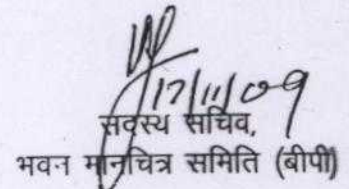 17/11/09
सदस्य सचिव,
भवन मानचित्र समिति (बीपी)